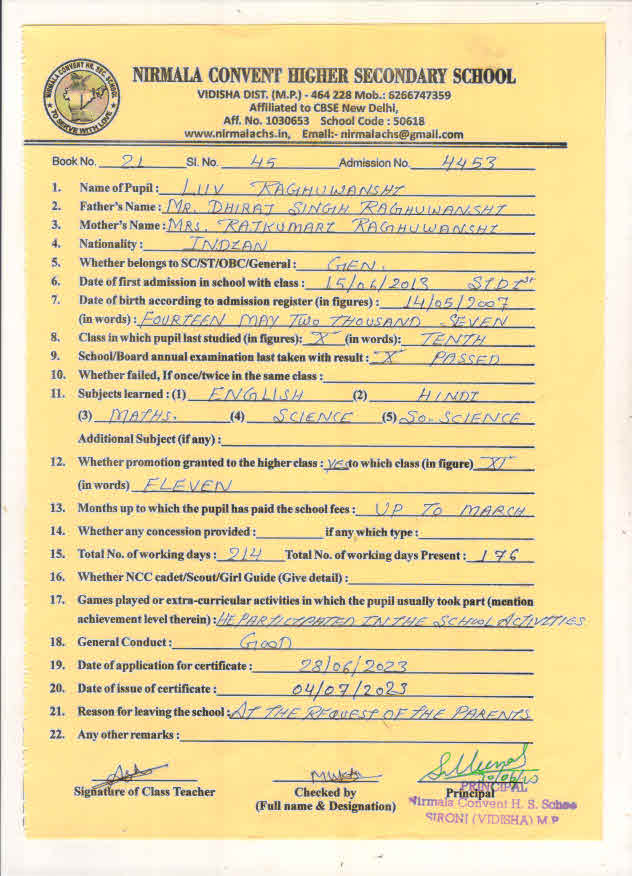 NIRMALA CONVENT HR. SEC. SCHOOL
TO SERVE WITH LOVE
NIRMALA CONVENT HIGHER SECONDARY SCHOOL
VIDISHA DIST. (M.P.) - 464 228 Mob.: 6266747359
Affiliated to CBSE New Delhi,
Aff. No. 1030653 School Code : 50618
www.nirmalachs.in, Email:- nirmalachs@gmail.com
Book No. 21 Sl. No. 45 Admission No. 4453
1. Name of Pupil : LUV RAGHUWANSHI
2. Father's Name : MR. DHIRAJ SINGH RAGHUWANSHI
3. Mother's Name : MRS. RAJKUMARI RAGHUWANSHI
4. Nationality : INDIAN
5. Whether belongs to SC/ST/OBC/General : GEN.
6. Date of first admission in school with class : 15/06/2013 STD Ist
7. Date of birth according to admission register (in figures) : 14/05/2007
(in words) : FOURTEEN MAY TWO THOUSAND SEVEN
8. Class in which pupil last studied (in figures): X (in words): TENTH
9. School/Board annual examination last taken with result : X PASSED
10. Whether failed, If once/twice in the same class :
11. Subjects learned : (1) ENGLISH (2) HINDI
(3) MATHS. (4) SCIENCE (5) SO-SCIENCE
Additional Subject (if any) :
12. Whether promotion granted to the higher class : YES to which class (in figure) XI
(in words) ELEVEN
13. Months up to which the pupil has paid the school fees : UP TO MARCH
14. Whether any concession provided : if any which type :
15. Total No. of working days : 214 Total No. of working days Present : 176
16. Whether NCC cadet/Scout/Girl Guide (Give detail) :
17. Games played or extra-curricular activities in which the pupil usually took part (mention
achievement level therein) : HE PARTICIPATED IN THE SCHOOL ACTIVITIES
18. General Conduct : GOOD
19. Date of application for certificate : 28/06/2023
20. Date of issue of certificate : 04/07/2023
21. Reason for leaving the school : AT THE REQUEST OF THE PARENTS
22. Any other remarks :
Signature of Class Teacher Checked by Principal
(Full name & Designation)
PRINCIPAL
Nirmala Convent H. S. Schoo
SIRONJ (VIDISHA) M P